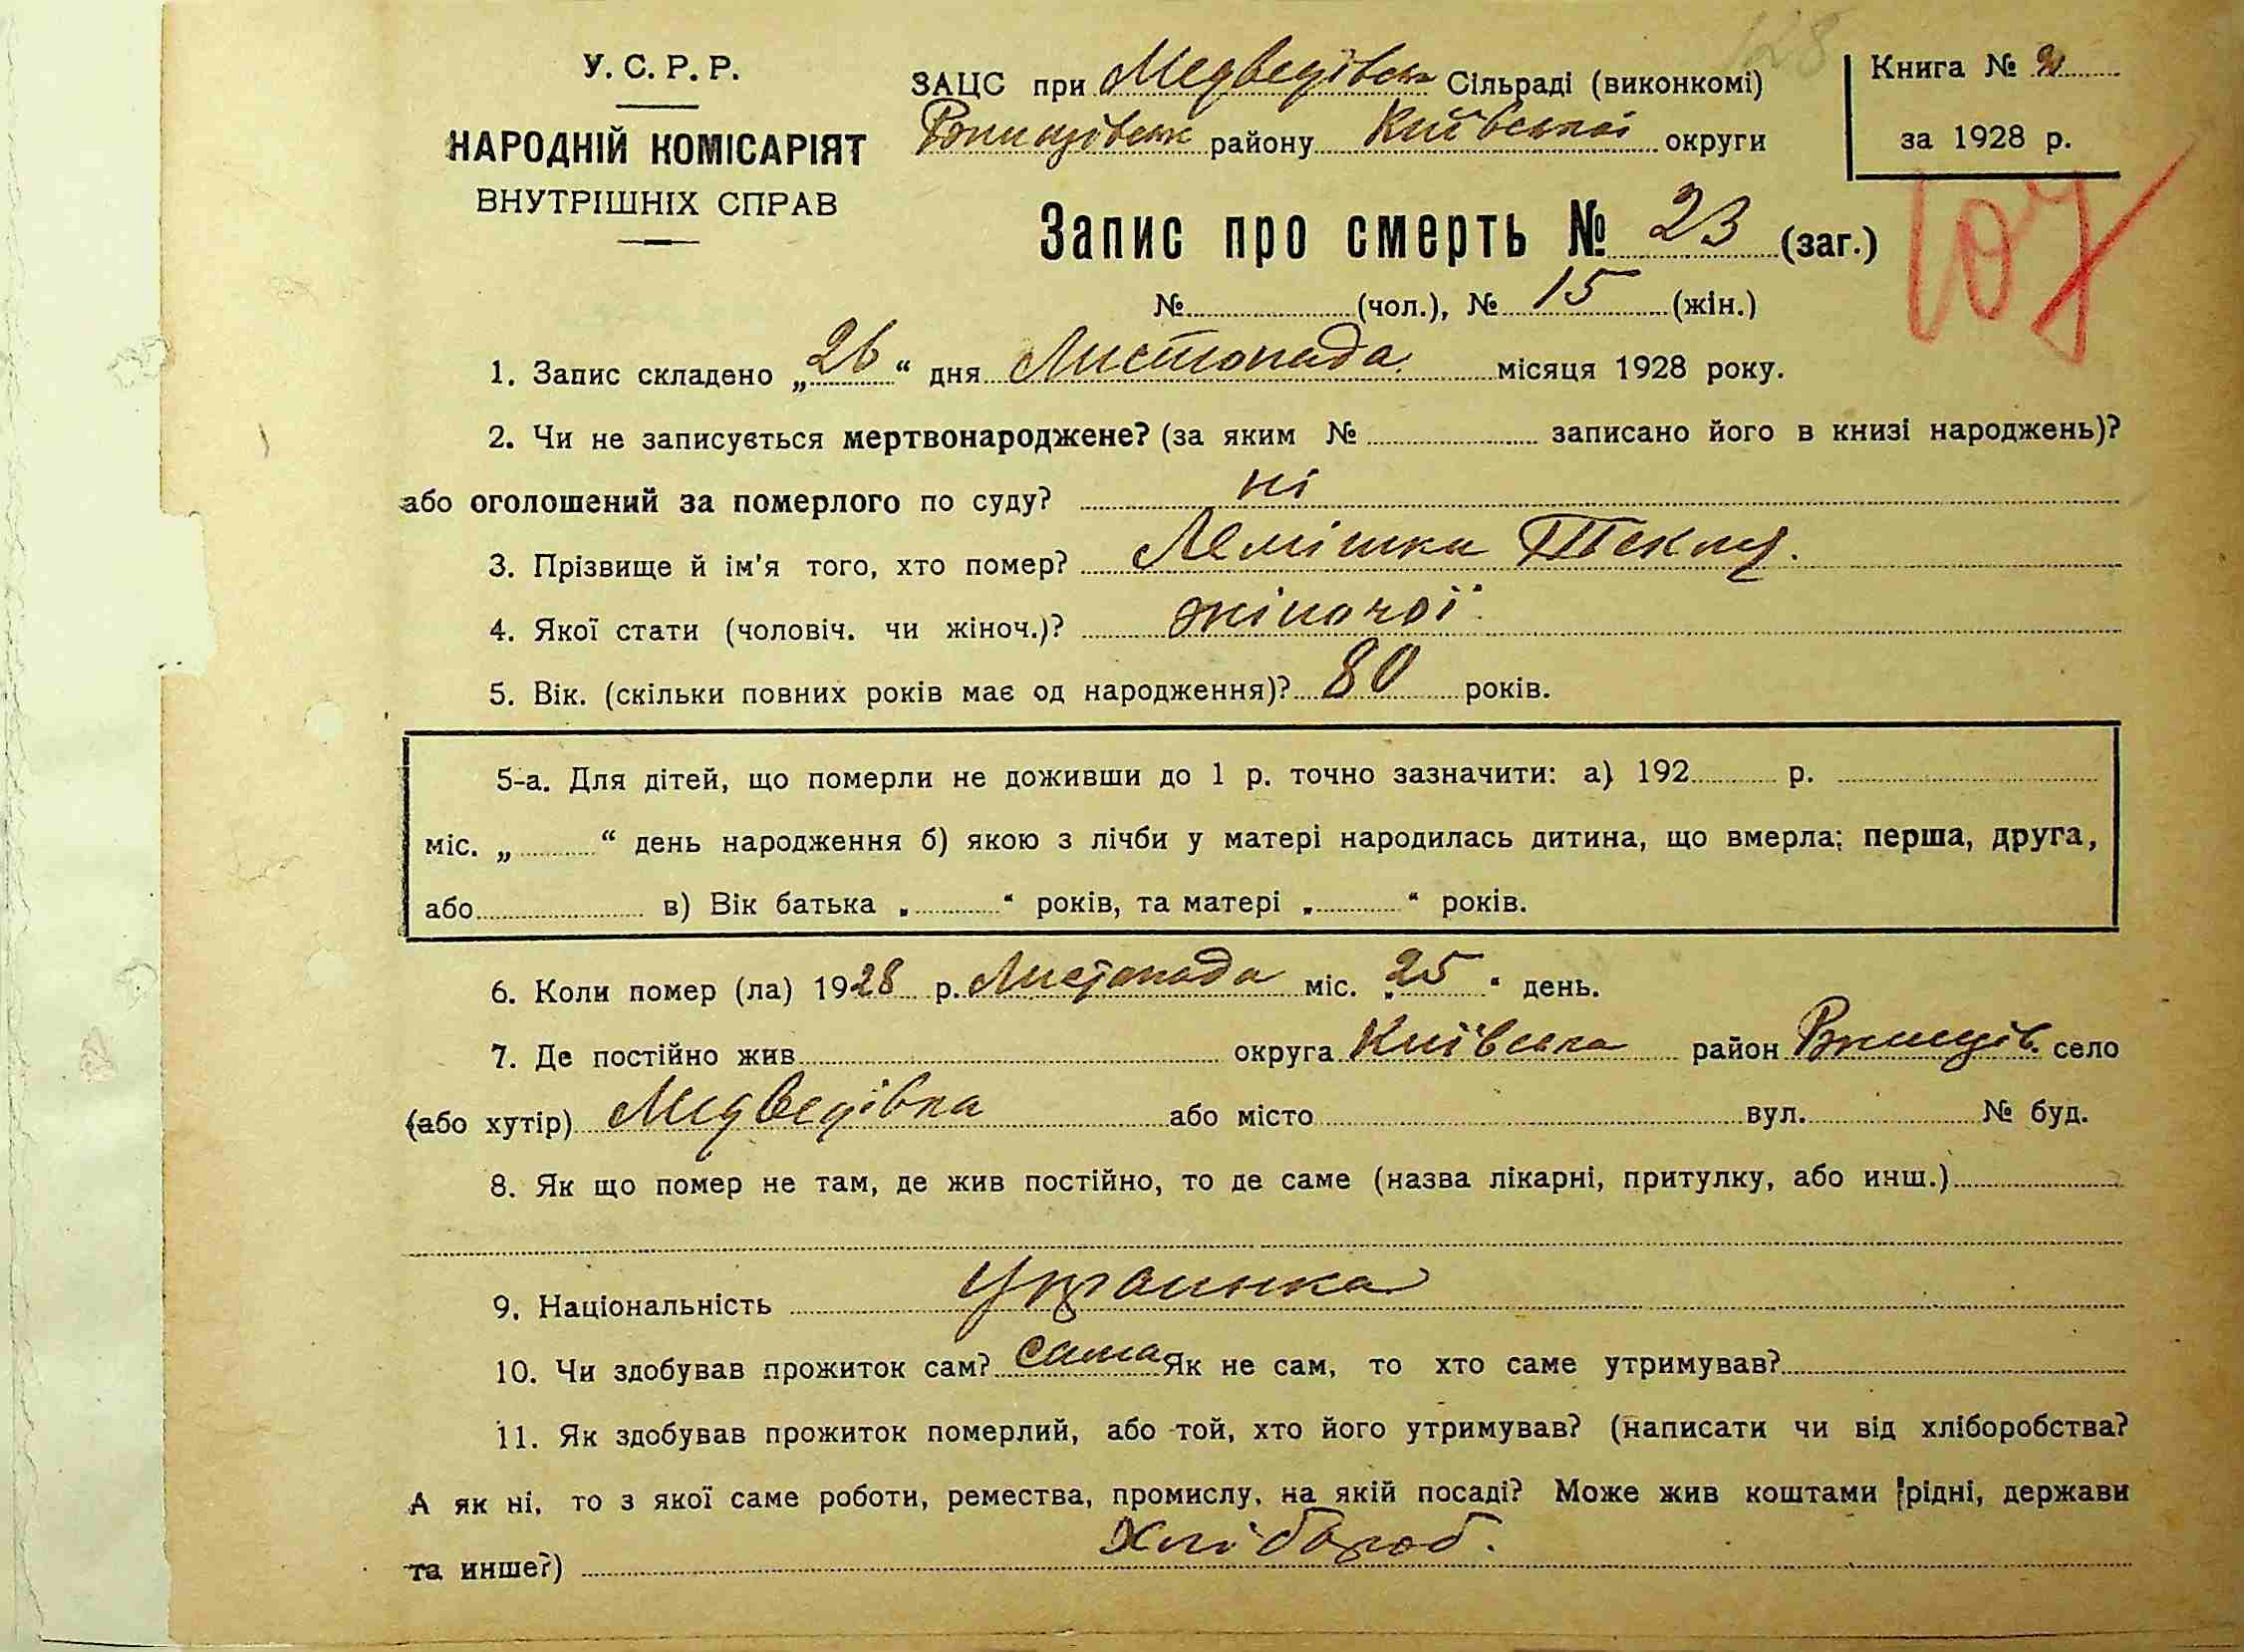 128
У. С. Р. Р.
НАРОДНІЙ КОМІСАРІЯТ
ВНУТРІШНІХ СПРАВ
ЗАЦС при Медведівськ Сільраді (виконкомі)
району Київської округи
Книга №
за 1928 р.
Запис про смерть № 23 (заг.)
107
№ (чол.), № 15 (жін.)
1. Запис складено „26“ дня Листопада місяця 1928 року.
2. Чи не записується мертвонароджене? (за яким № записано його в книзі народжень)?
або оголошений за померлого по суду? ні
3. Прізвище й ім'я того, хто помер? Лемішка Текля.
4. Якої стати (чоловіч. чи жіноч.)? жіночої
5. Вік. (скільки повних років має од народження)? 80 років.
5-а. Для дітей, що померли не доживши до 1 р. точно зазначити: а) 192 р.
міс. „ “ день народження б) якою з лічби у матері народилась дитина, що вмерла; перша, друга,
або в) Вік батька „ “ років, та матері „ “ років.
6. Коли помер (ла) 1928 р. Листопада міс. „25“ день.
7. Де постійно жив округа Київська район село
(або хутір) Медведівка або місто вул. № буд.
8. Як що помер не там, де жив постійно, то де саме (назва лікарні, притулку, або инш.)
9. Національність Українка
10. Чи здобував прожиток сам? сама Як не сам, то хто саме утримував?
11. Як здобував прожиток померлий, або той, хто його утримував? (написати чи від хліборобства?
А як ні, то з якої саме роботи, ремества, промислу, на якій посаді? Може жив коштами рідні, держави
та инше?) Хлібороб.